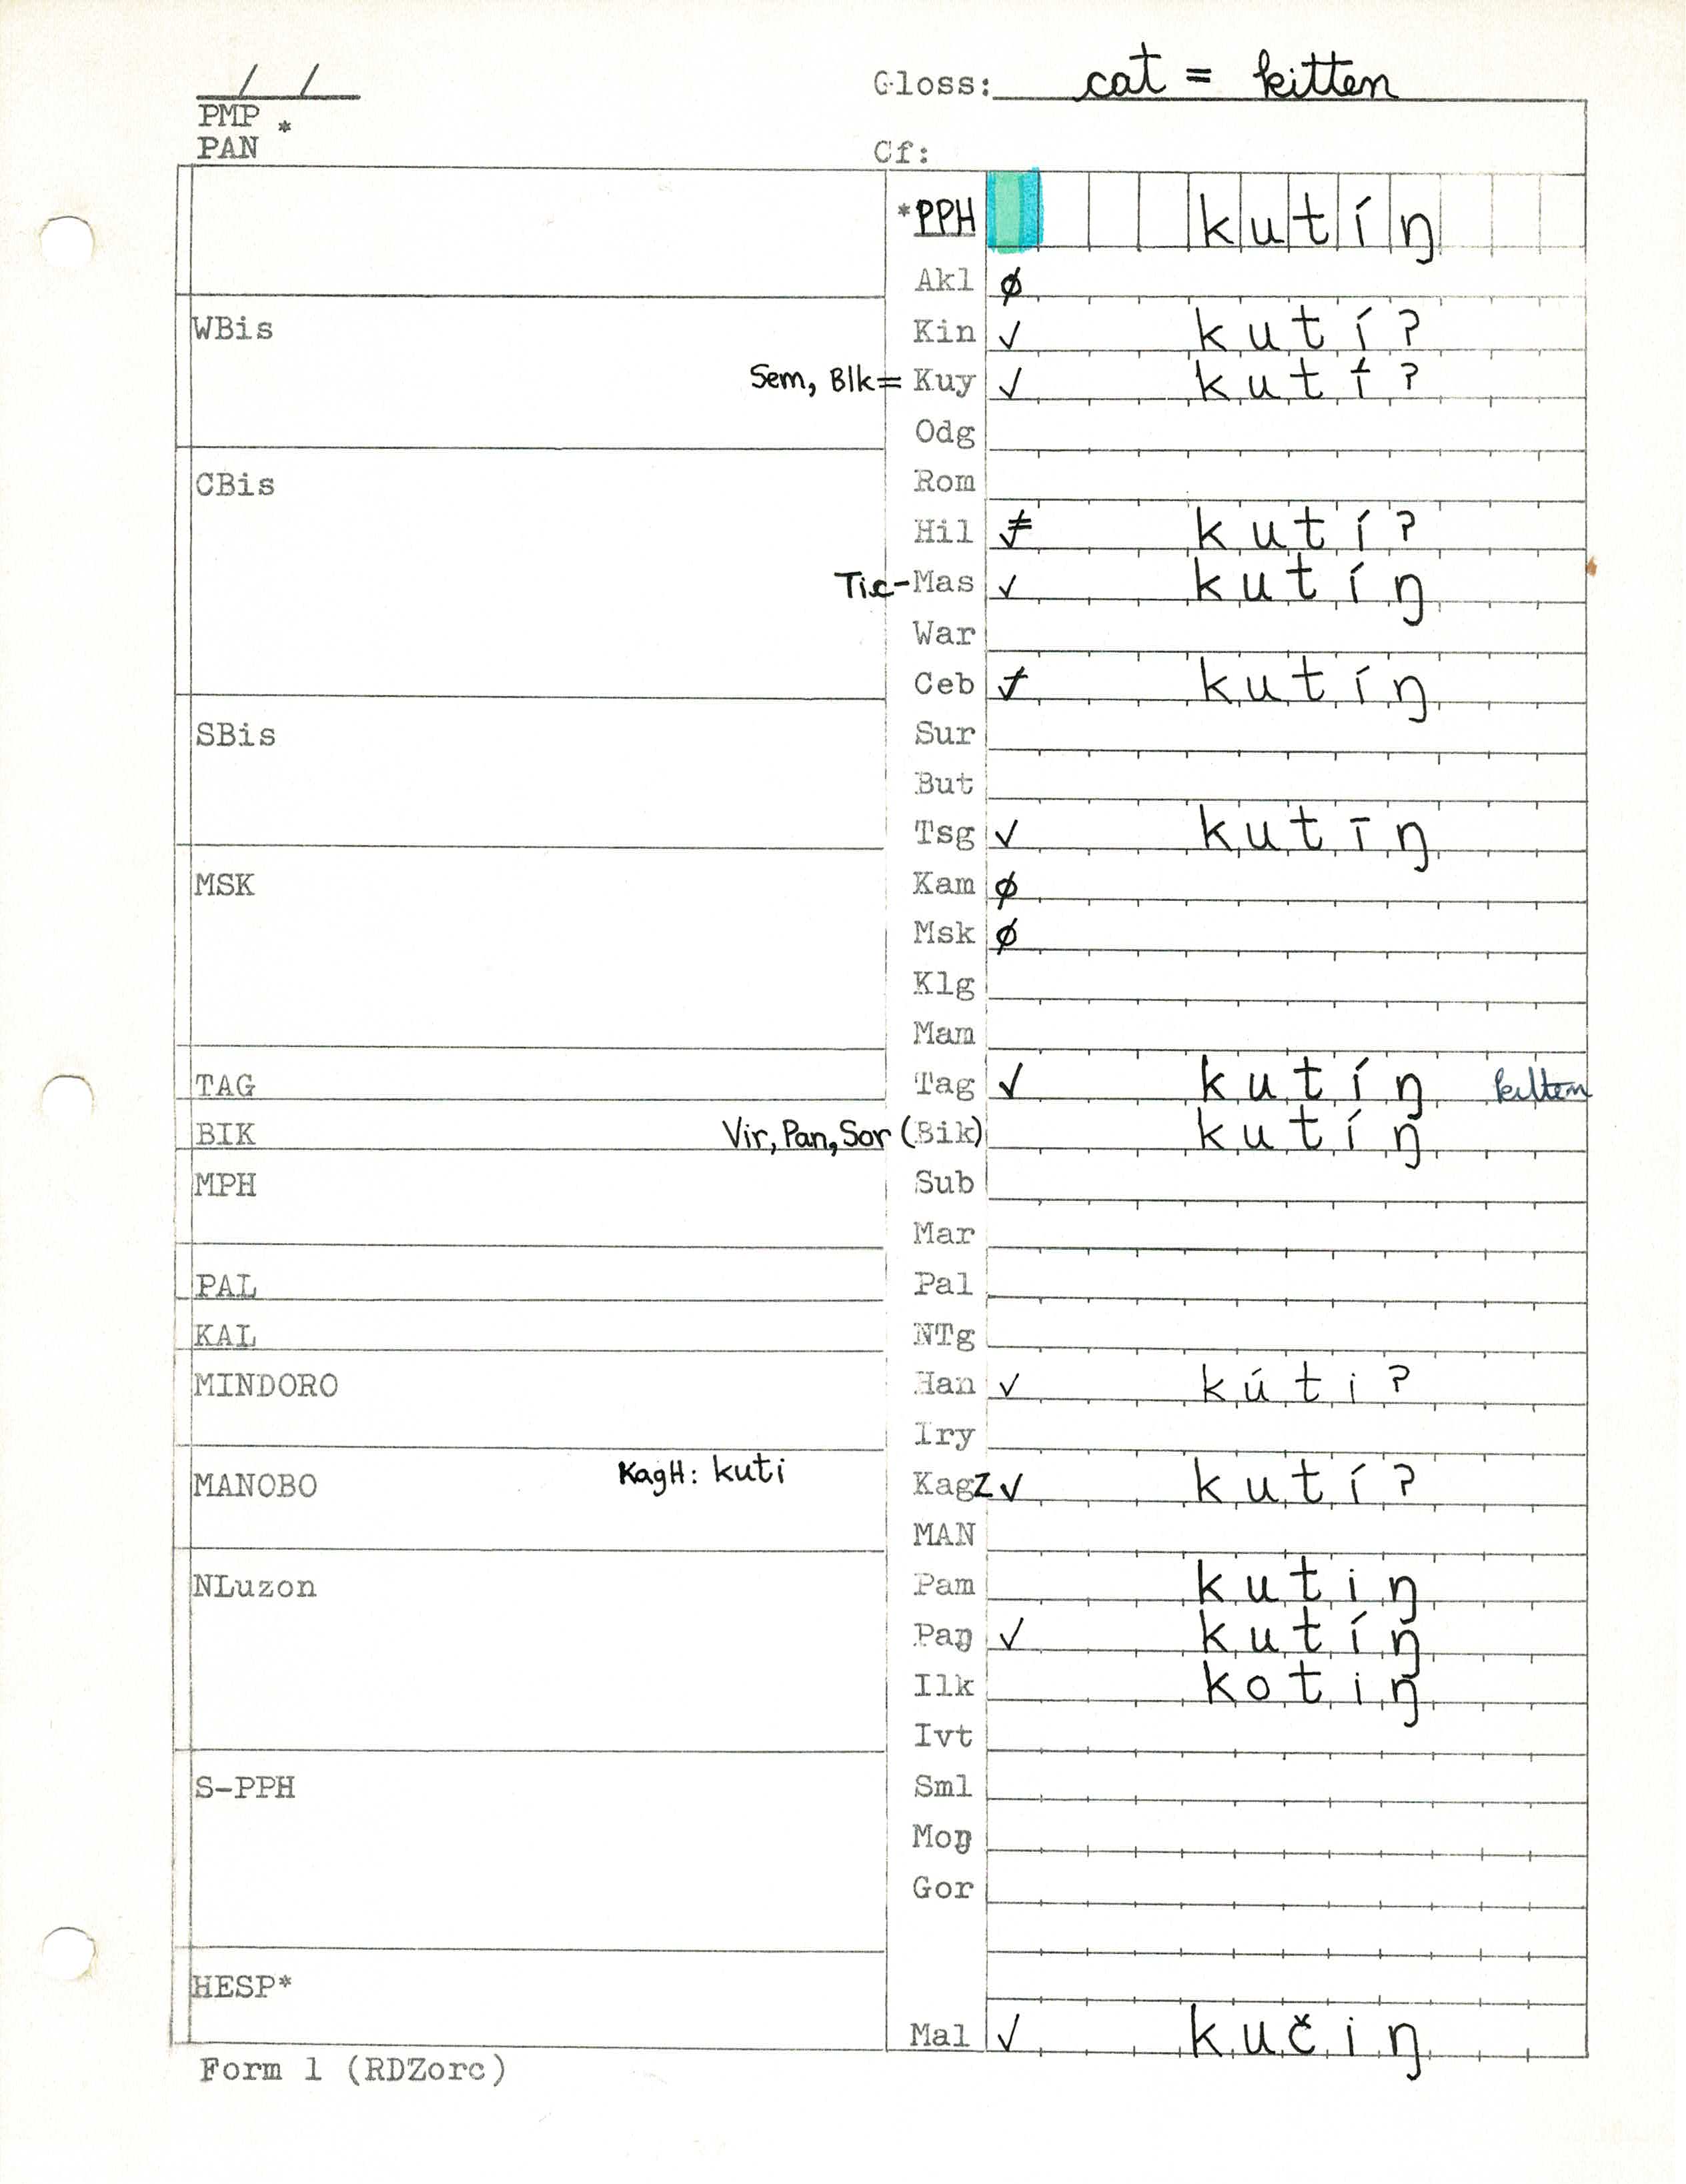 / / Gloss: cat = kitten
PMP *
PAN Cf:
*PPH kutíŋ
Akl ∅
WBis Kin ✓ kutí?
Sem, Blk= Kuy ✓ kutí?
Odg
CBis Rom
Hil ✓ kutí?
Tic-Mas ✓ kutíŋ
War
Ceb ✓ kutíŋ
SBis Sur
But
Tsg ✓ kutīŋ
MSK Kam ∅
Msk ∅
Klg
Mam
TAG Tag ✓ kutíŋ kitten
BIK Vir, Pan, Sor (Bik) kutíŋ
MPH Sub
Mar
PAL Pal
KAL NTg
MINDORO Han ✓ kúti?
Iry
MANOBO KagH: kuti KagZ ✓ kutí?
MAN
NLuzon Pam kutiŋ
Paŋ ✓ kutíŋ
Ilk kotiŋ
Ivt
S-PPH Sml
Moŋ
Gor
HESP*
Mal ✓ kučiŋ
Form 1 (RDZorc)